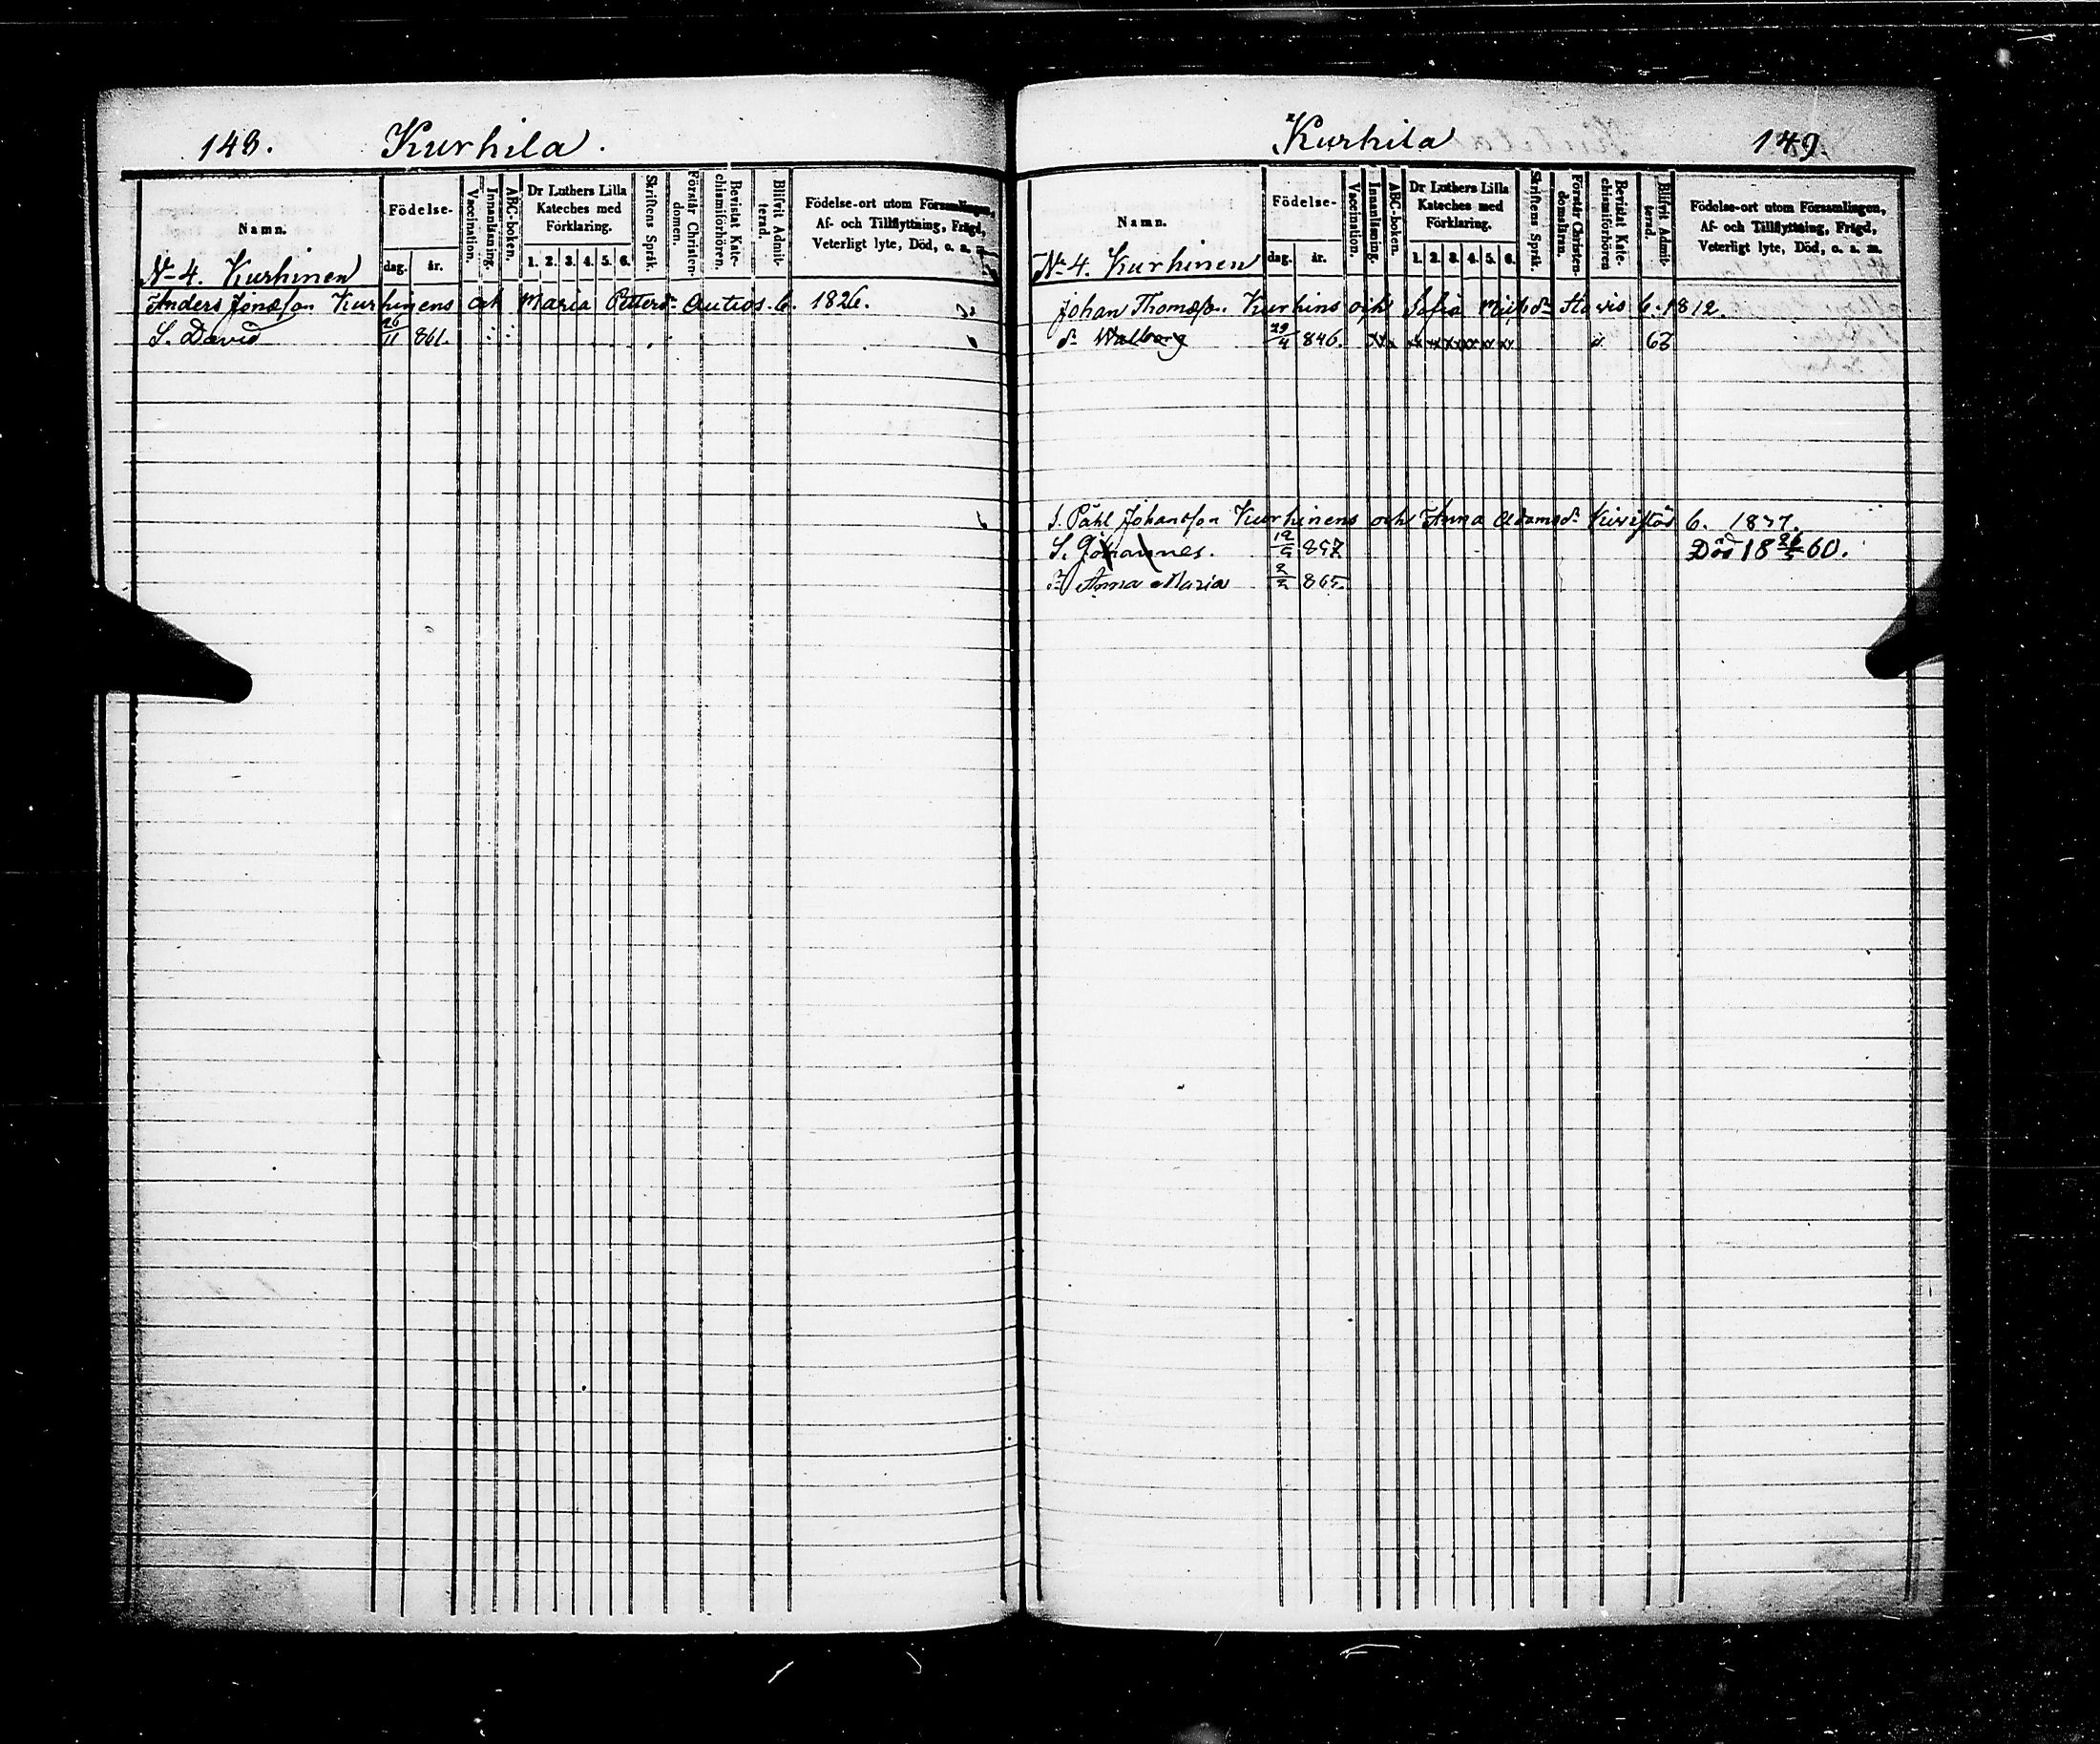 148. Kurhila.
Namn. Födelse- dag. år. Vaccination. Innanläsning. ABC-boken. Dr Luthers Lilla Kateches med Förklaring. 1. 2. 3. 4. 5. 6. Skriftens Språk. Förstår Christendomen. Bevistat Katechismiförhören. Blifvit Admitterad. Födelse-ort utom Församlingen, Af- och Tillflyttning, Frägd, Veterligt lyte, Död, o. s. m.
N 4. Kurhinen
Anders Jonasson Kurhinens och Maria Pettersd. Autios. b. 1826.
S. David 26/11 861.
Kurhila 149.
Namn. Födelse- dag. år. Vaccination. Innanläsning. ABC-boken. Dr Luthers Lilla Kateches med Förklaring. 1. 2. 3. 4. 5. 6. Skriftens Språk. Förstår Christendomsläran. Bevistat Katechismiförhören Blifvit Admitterad. Födelse-ort utom Församlingen, Af- och Tillflyttning, Frägd, Veterligt lyte, Död, o. s. m.
N 4. Kurhinen
Johan Thomasson Kurhins och Sofia b. 1812.
d. Walborg 29/4 846. 63
S. Påhl Johansson Kurhinens och Anna Adamsd. b.
S. Johannes. 857 Död 18 26/5 60.
d. Anna Maria 2/2 865